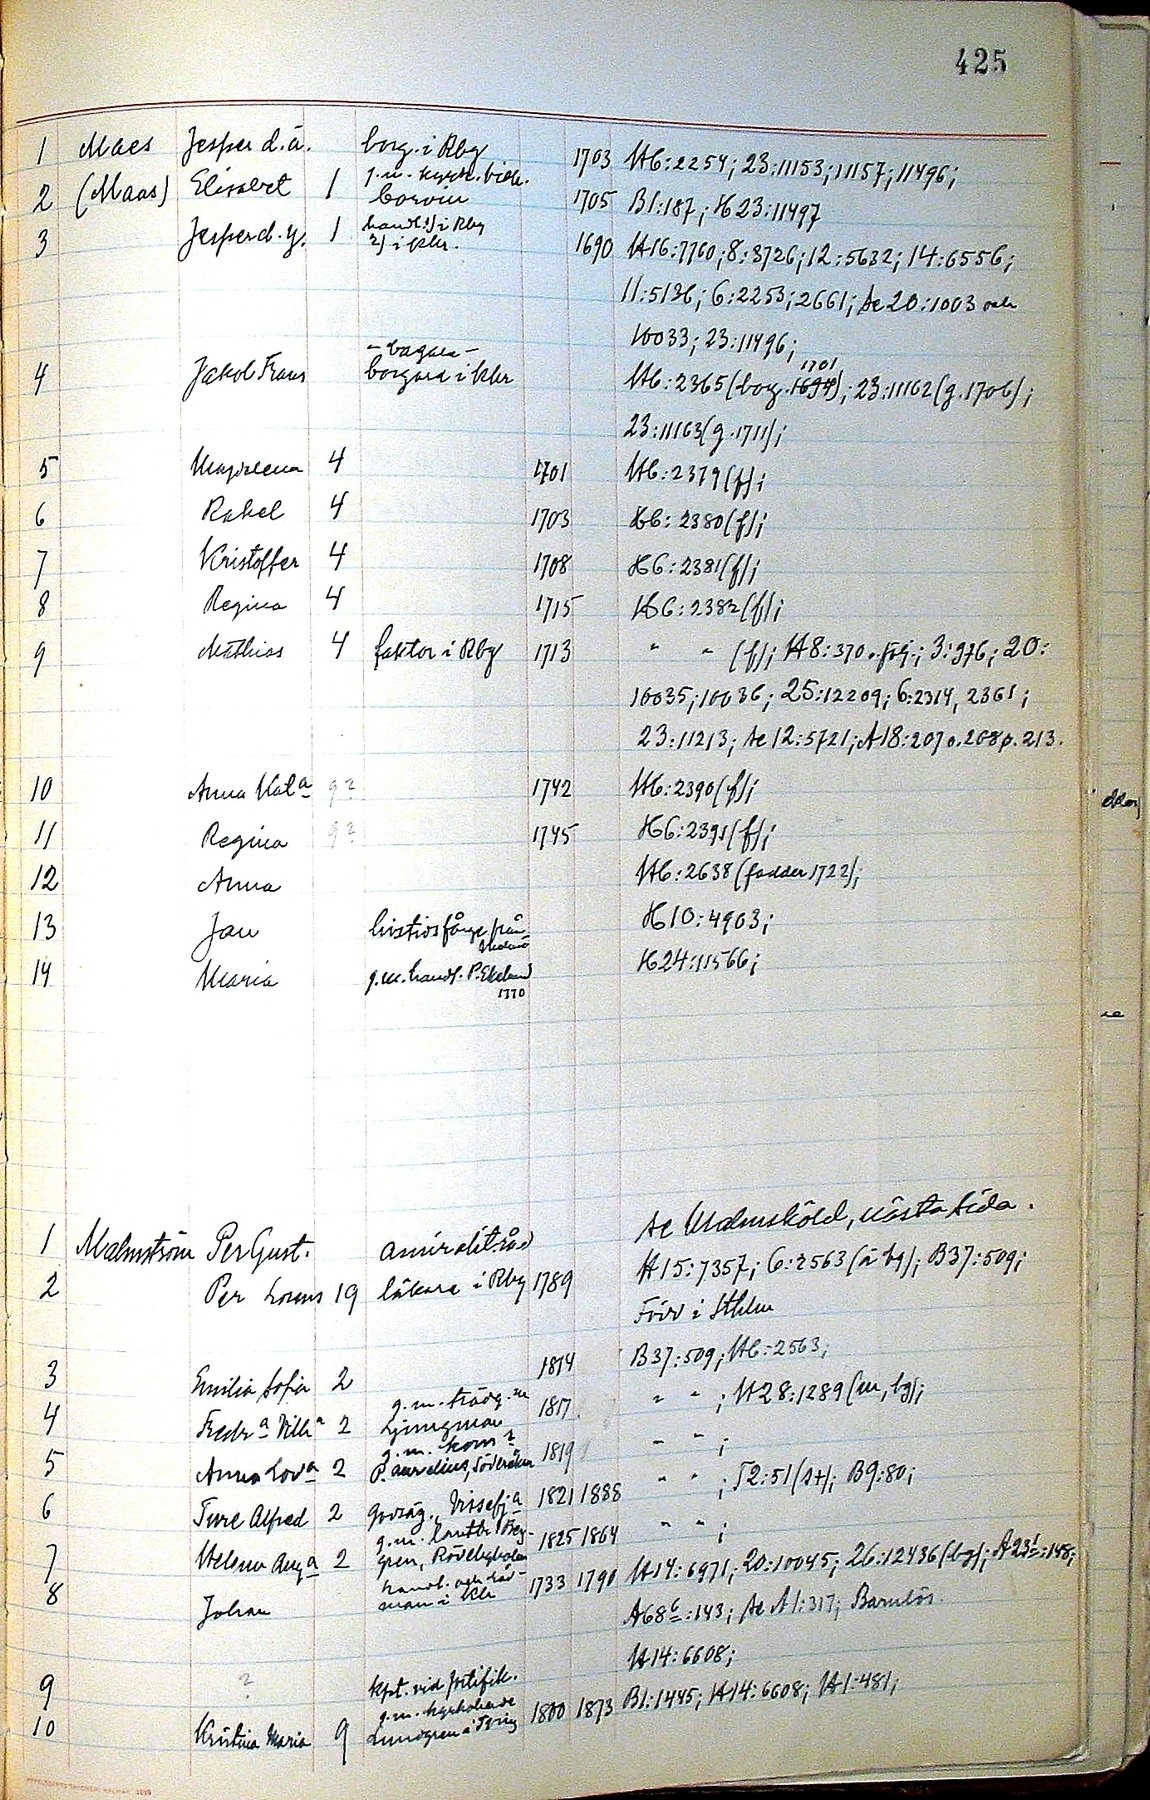 425
1 Maes Jesper d.ä. borg. i Rby 1703 H6:2254; 23:11153; 11157; 11496;
2 (Maas) Elisabet 1 g.m. kyrkh. Corvin 1705 B1:187; H23:11497
3 Jesper d.y. 1 handl. 1) i Rby 2) i Khr. 1690 H16:7760; 8:3726; 12:5632; 14:6556;
11:5136; 6:2253; 2661; Se 20:1003 och
10033; 23:11496;
4 Jakob Frans - bagare - borgare i Khr H6:2365 (borg. 1701); 23:11162 (g. 1706);
23:11163 (g. 1711);
5 Magdalena 4 1701 H6:2379 (f);
6 Rakel 4 1703 H6:2380 (f);
7 Kristoffer 4 1708 H6:2381 (f);
8 Regina 4 1715 H6:2382 (f);
9 Mathias 4 faktor i Rby 1713 " " (f); H8:370 o. följ.; 3:976; 20:
10035; 10036; 25:12209; 6:2314, 2361;
23:11213; Se 12:5721; A18:207 o. 208 o. 213.
10 Anna Kat:a 9? 1742 H6:2390 (f);
11 Regina 9? 1745 H6:2391 (f);
12 Anna H6:2638 (fadder 1722);
13 Jan livstidsfånge från H10:4903;
14 Maria g.m. handl. P. Ekelund 1770 H24:11566;
Se Malmsköld, nästa sida.
1 Malmström Per Gust. amiralitetsråd H15:7357; 6:2563 (ä bg); B37:509;
2 Per 19 läkare i Rby 1789 Förv i Sthlm
B37:509; H6:2563;
3 Emilia Sofia 2 1814 " " ; H28:1289 (m, bg);
4 Fredr:a Vilh:a 2 g.m. trädg.m Ljungman 1817 " " ;
5 Anna Lov:a 2 g.m. kom:r P. Aurelius, Söderåkra 1819 " " ; T2:51 (st); B9:80;
6 Ture Alfred 2 godsäg., Vissefj:a 1821 1888 " " ;
7 Helena Aug:a 2 g.m. lantbr. gren, Rödebyholm 1825 1864
8 Johan handl. och rådman i Khr 1733 1790 H14:6971; 20:10045; 26:12436 (bg); A23:148;
A68:143; Se A1:317; Barnlös.
H14:6608;
9 ? kpt. vid fortifik.
10 Kristina Maria 9 g.m. kyrkoherde Lundgren i Tving 1800 1873 B1:1445; H14:6608; H1:481;